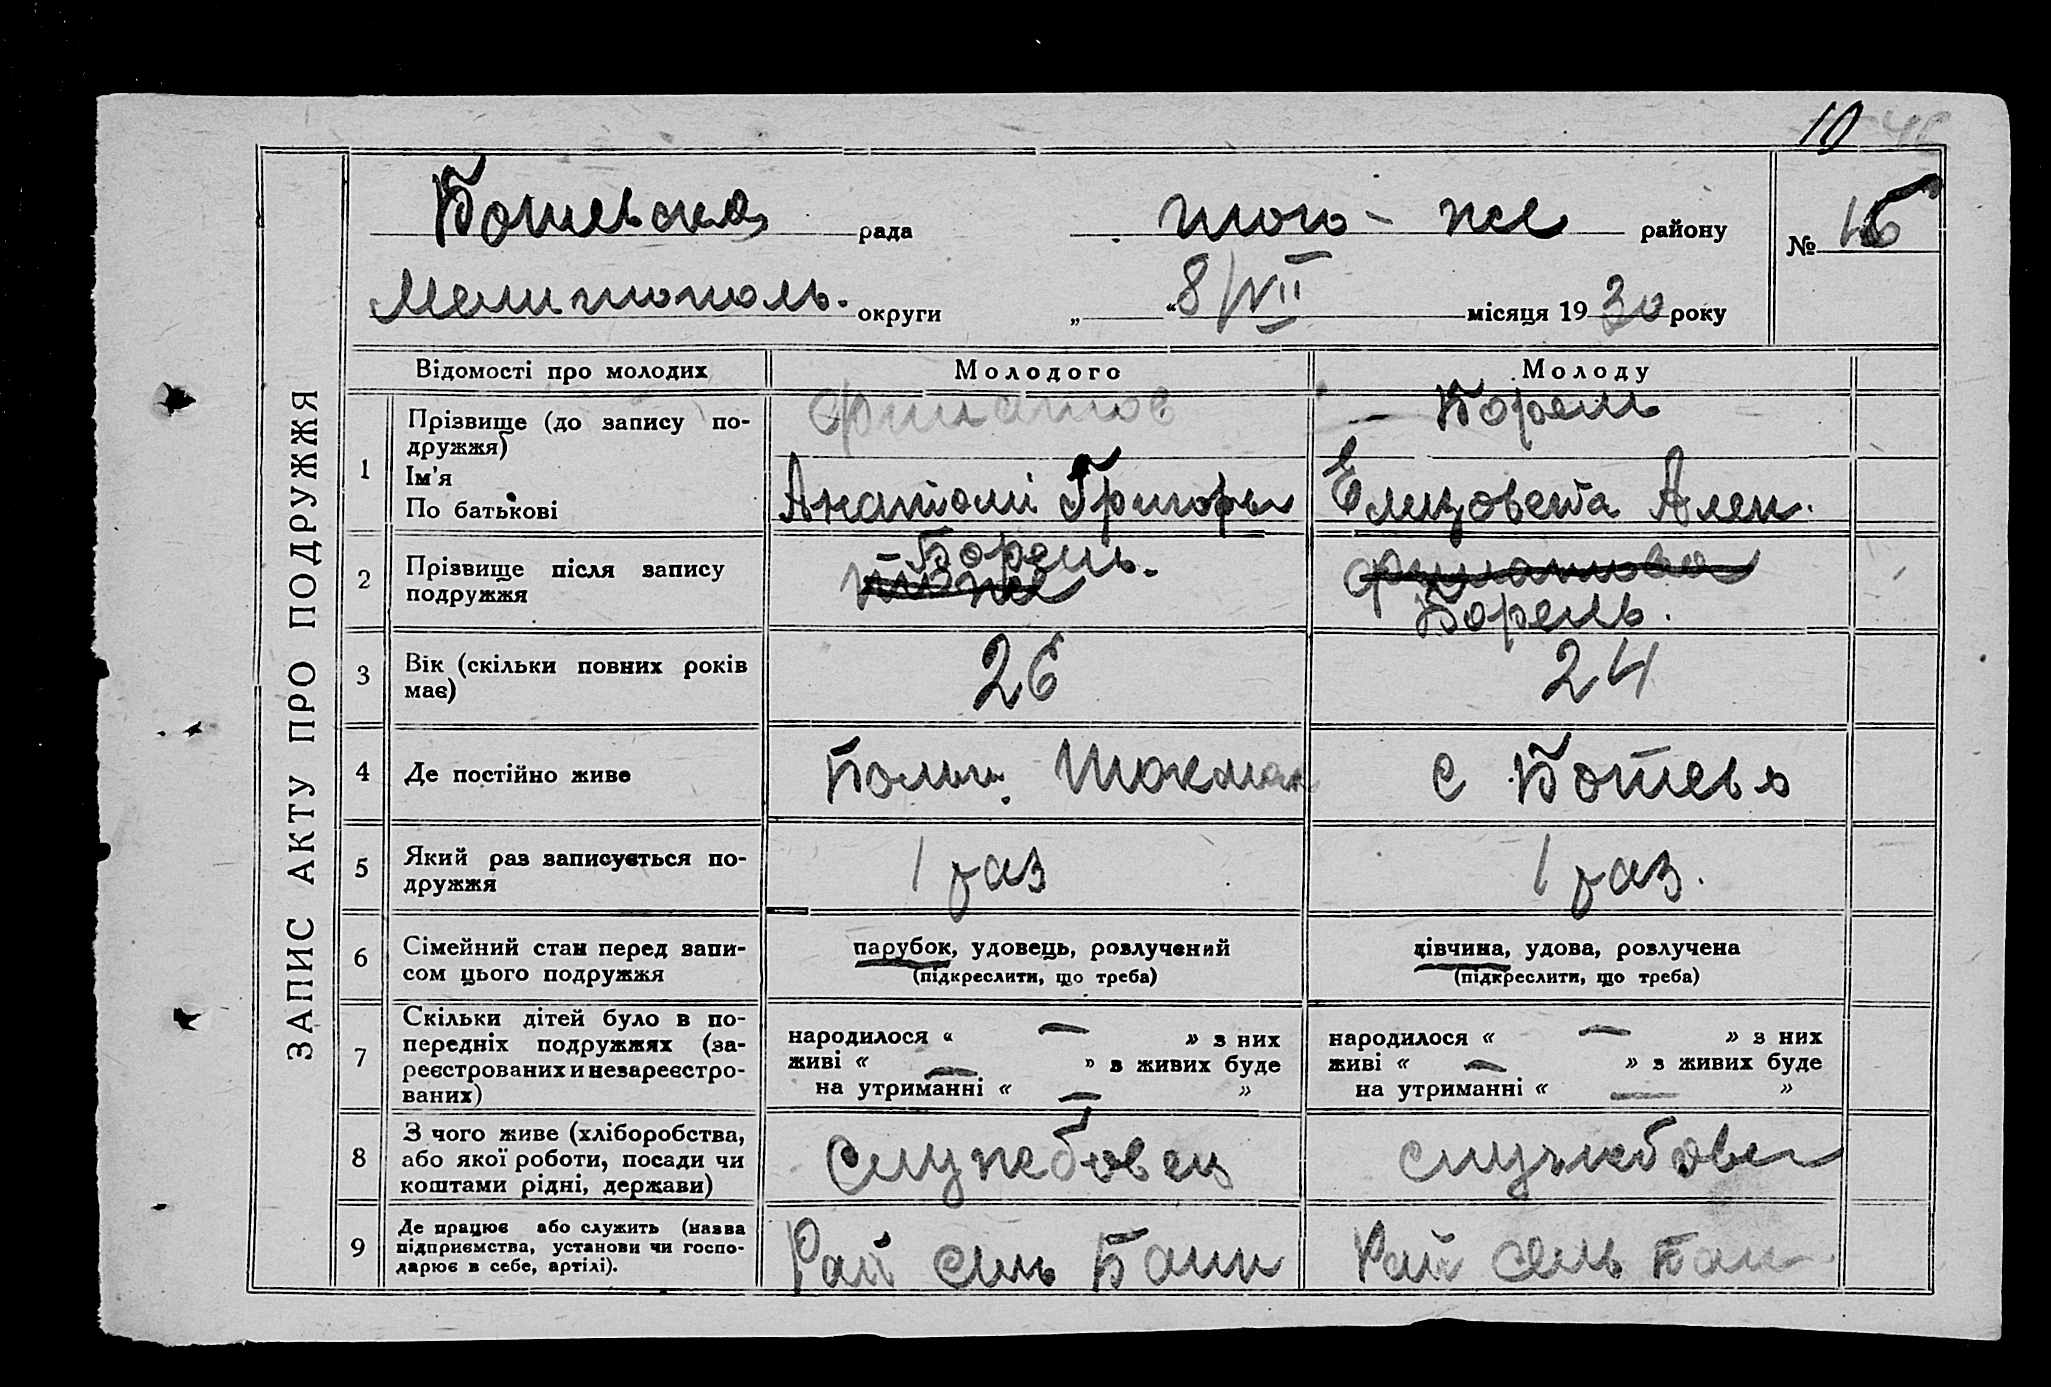 10
ЗАПИС АКТУ ПРО ПОДРУЖЖЯ
Ботевска рада того-же району № 15
Мелитополь. округи „ “ 8/VII місяця 1930 року
Відомості про молодих Молодого Молоду
1 Прізвище (до запису по-
дружжя)
Ім'я
По батькові
Филатов
Анатолі Григорьи
Борель
Елизовета Ален.
2 Прізвище після запису
подружжя
Борель.
тоже
Филатова
Борель.
3 Вік (скільки повних років
має)
26
24
4 Де постійно живе
Больш. Токмак
с Ботево
5 Який раз записується по-
дружжя
1 раз
1 раз.
6 Сімейний стан перед запи-
сом цього подружжя
парубок, удовець, розлучений
(підкреслити, що треба)
дівчина, удова, розлучена
(підкреслити, що треба)
7 Скільки дітей було в по-
передніх подружжях (за-
реєстрованих и незареєстро-
ваних)
народилося « — » з них
живі « — » з живих буде
на утриманні « — »
народилося « — » з них
живі « — » з живих буде
на утриманні « — »
8 З чого живе (хліборобства,
або якої роботи, посади чи
коштами рідні, держави)
Службовец
службовец
9 Де працює або служить (назва
підприємства, установи чи госпо-
дарює в себе, артілі).
Рай Сель Банк
Рай Сель Банк